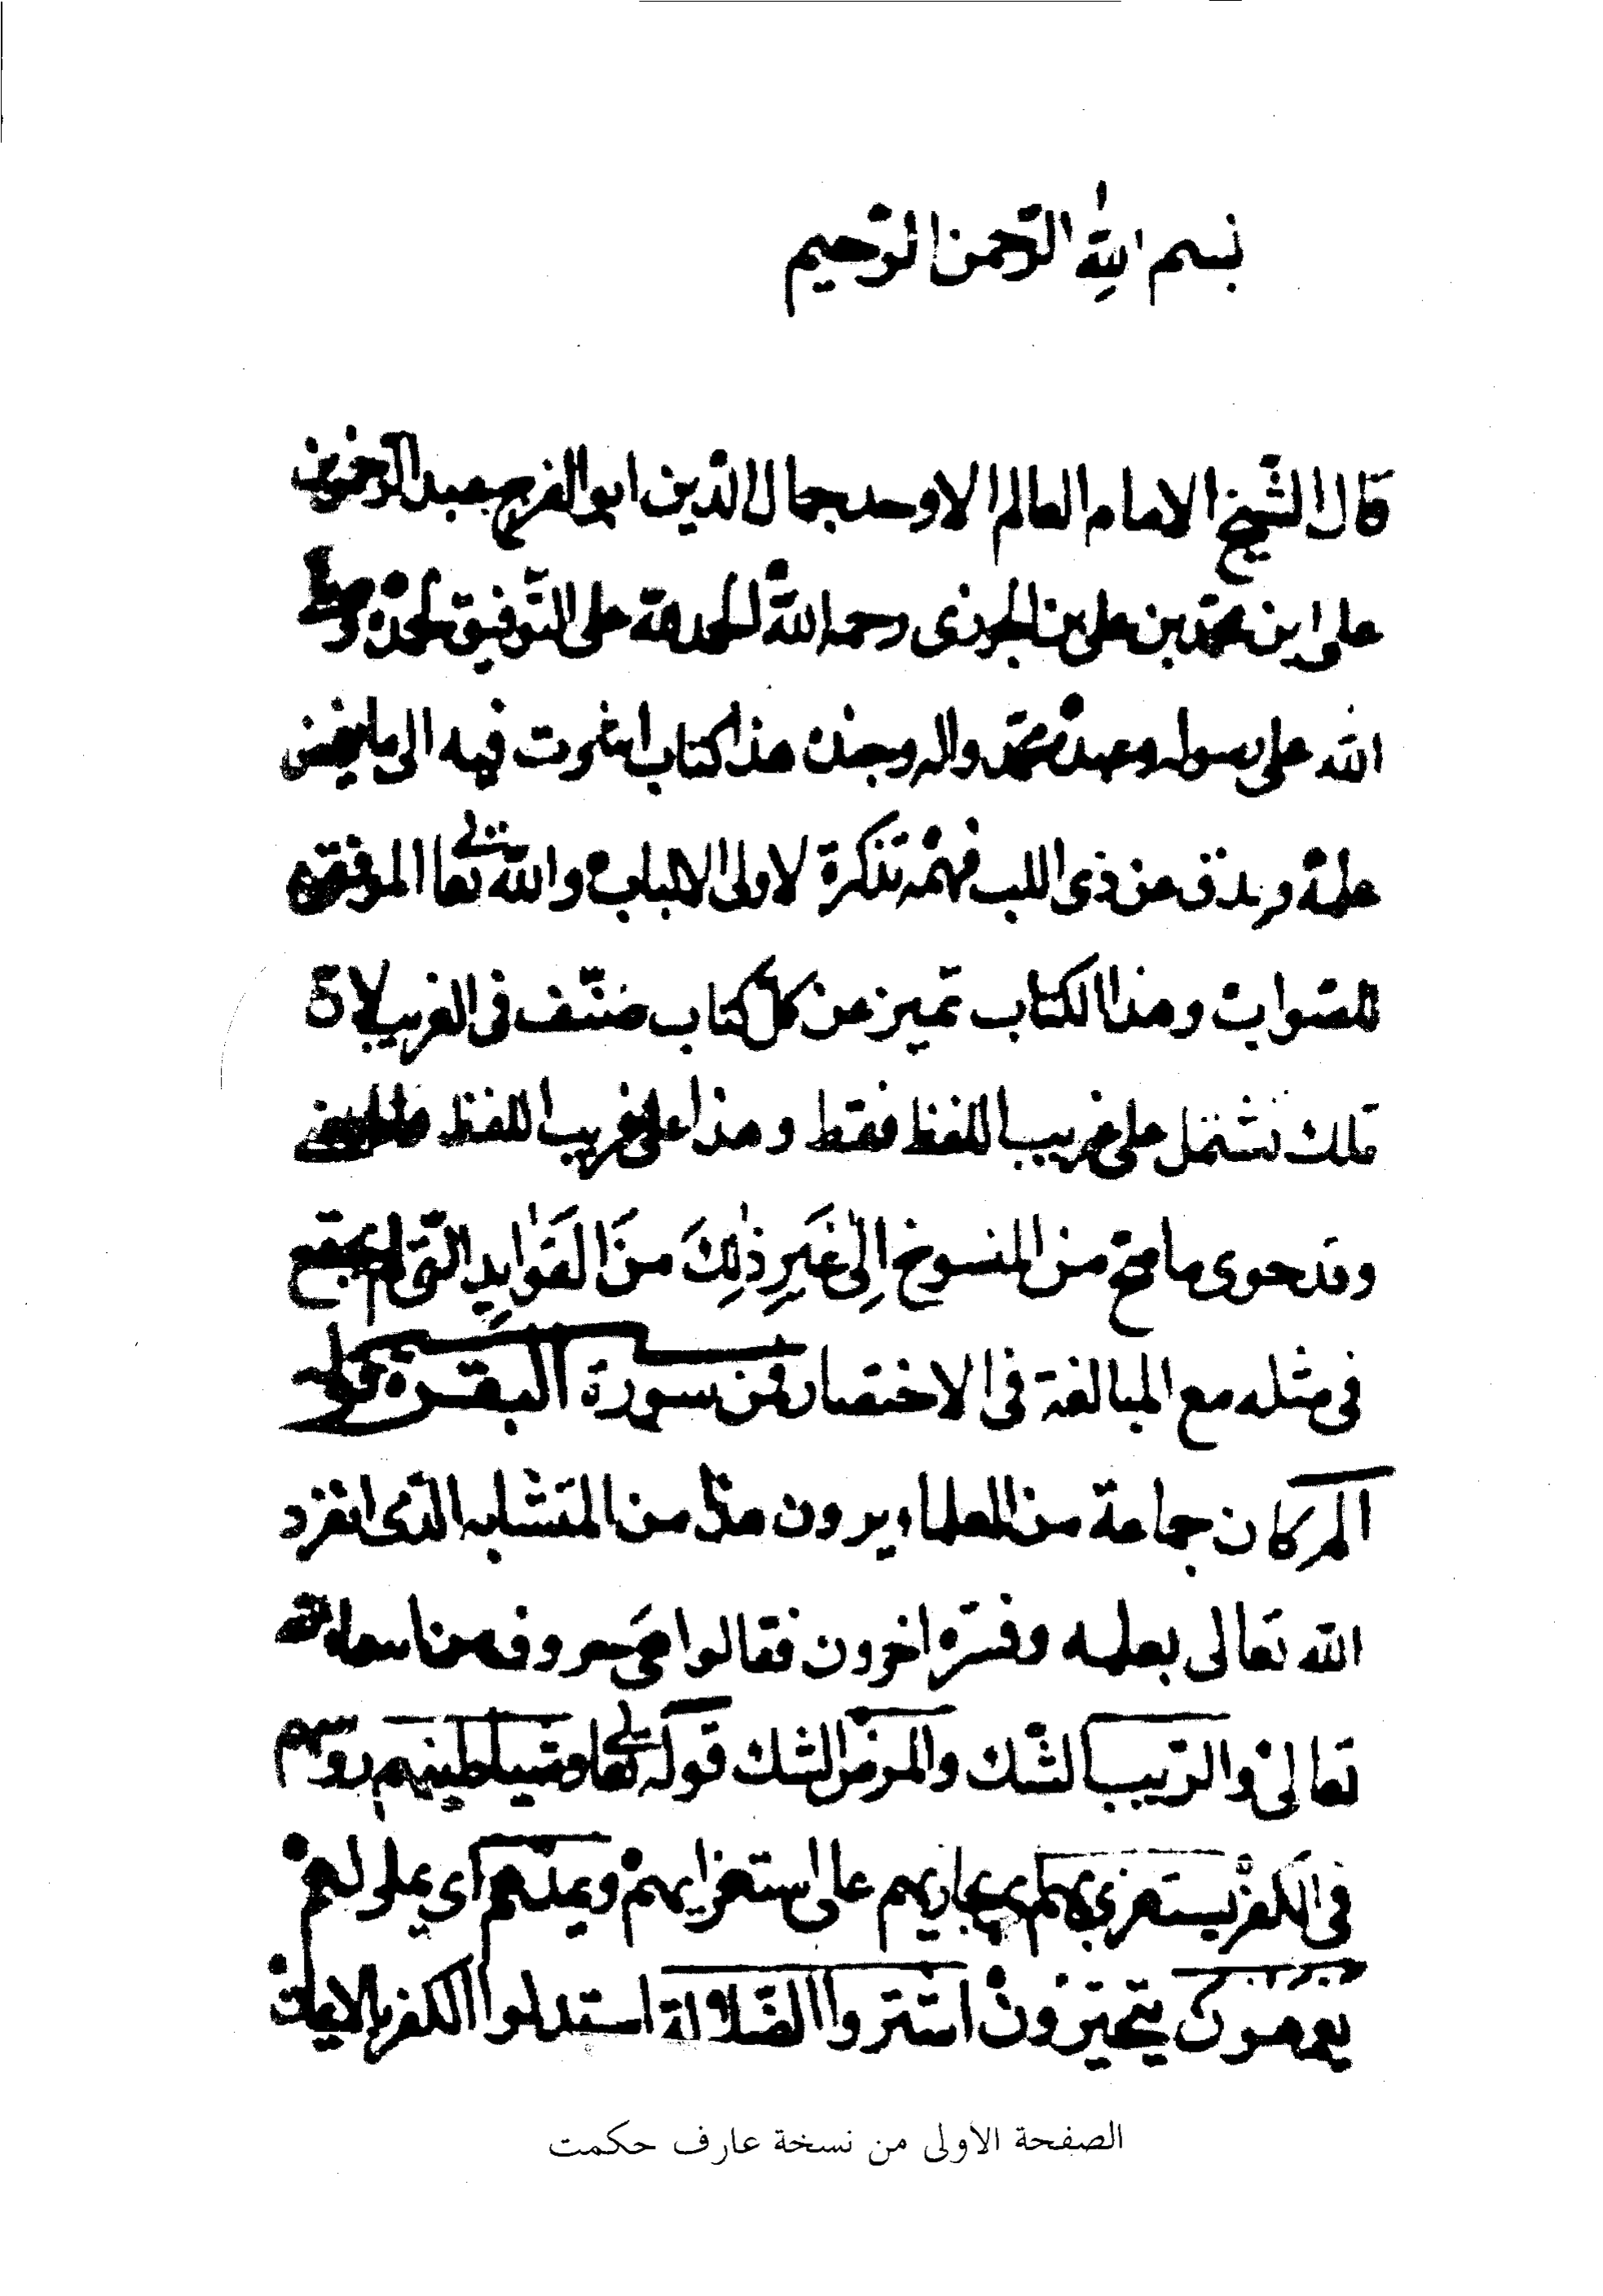 بسم الله الرّحمن الرّحيم
قال الشّيخ الامام العالم الاوحد جمال الدّين ابو الفرج عبد الرّحمن بن
على ابن محمّد بن على بن الجوزى رحمه اللّٰه الحمد لله على التّوفيق لحمده وصلى
اللّه على رسوله وعبده محمّد واله وجنده هذا كتاب اشرت فيه الى ما يغمض
علمه ويدق عن ذى اللب فهمه تذكرة لاولى الالباب واللّه تعالى الموفق
للصّواب وهذا الكتاب تميز عن كل كتاب صنّف فى الغريب لانّ
تلك تشتمل على غريب اللفظ فقط وهذا على غريب اللفظ
وقد حوى ما صحّ من المنسوخ اِلىٰ غَيرِ ذٰلِكَ منَ الفَوٰايِدِ الّتى لم يجتمع
فى مثله مع المبالغة فى الاختصار فمن سورة البقـرة قوله
الم كان جماعة من العلماء يرون هذا من المتشابه الّذى انفرد
اللّه تعالى بعلمه وفسّره اخرون فقالوا هى حروف من اسماء اللّه
تعالىٰ والرّيب الشّك والمرض الشك قوله تعالى وشياطينهم روسهم
فى الكفر يستهزئ بهم اى يجازيهم على استهزايهم ويمدّهم اى يملى لهم
يعمهون يتحيّرون اشتروا الضّلالة استبدلوا الكفر بالايمان
الصفحة الاولى من نسخة عارف حكمت